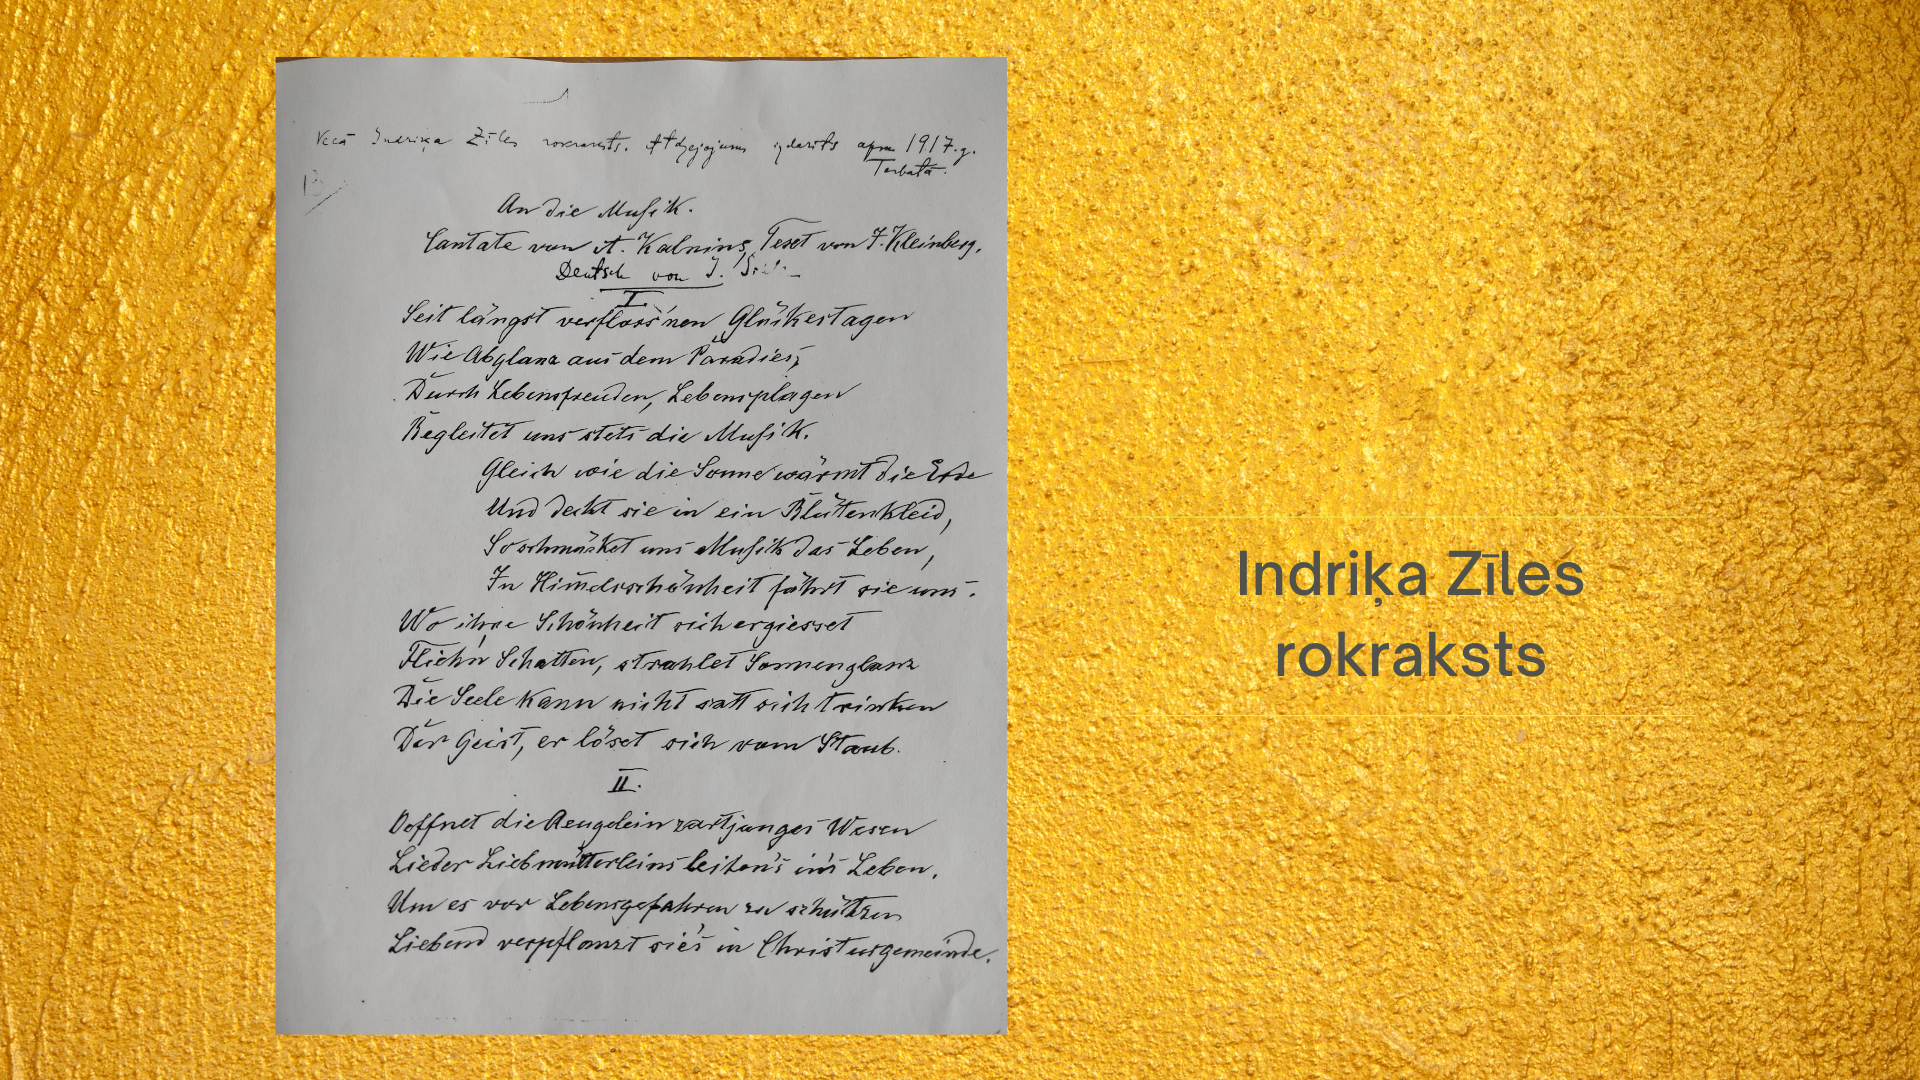 Vecā Indriķa Zīles rokraksts. Atdzejojums izdarīts apm 1917.g.
Tērbatā.
An die Musik.
Cantate von A. Kalnins, Text von F. Kleinberg,
Deutsch von J.
I.
Seit längst verfloss'nen Glückestagen
Wie Abglanz aus dem Paradies,
Durch Lebensfreuden, Lebensplagen
Begleitet uns stets die Musik.
Gleich wie die Sonne wärmt die Erde
Und deckt sie in ein Blütenkleid,
So schmücket uns Musik das Leben,
In Him̄elsschönheit führt sie uns.
Wo ihre Schönheit sich ergiesset
Flieh'n Schatten, strahlet Sonnenglanz
Die Seele kann nicht satt sich trinken
Der Geist, er löset sich vom Staub.
II.
Oeffnet die Aeugelein zart junges Wesen
Lieder Liebmütterleins leiten's in's Leben.
Um es vor Lebensgefahren zu schützen
Liebend verpflanzt sie's in Christusgemeinde.
Indriķa Zīles
rokraksts